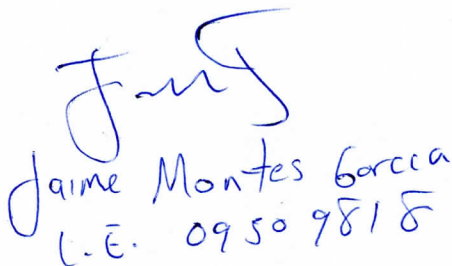 Jaime Montes Garcia
L.E. 09509818